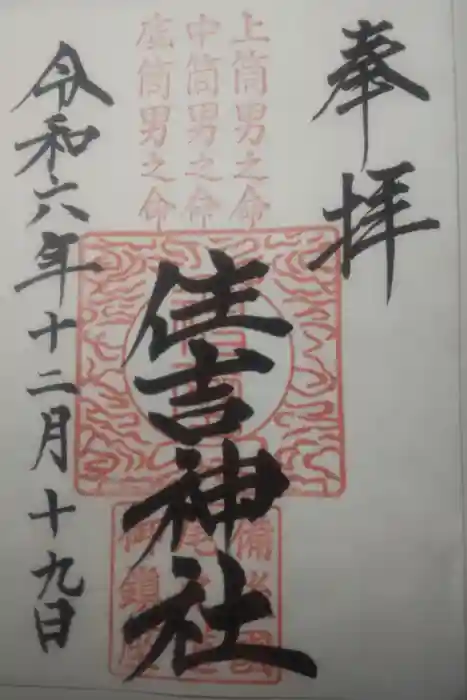 奉拝
上筒男之命
中筒男之命
底筒男之命
住吉神社
備
尾道
御鎮座
令和六年十二月十九日